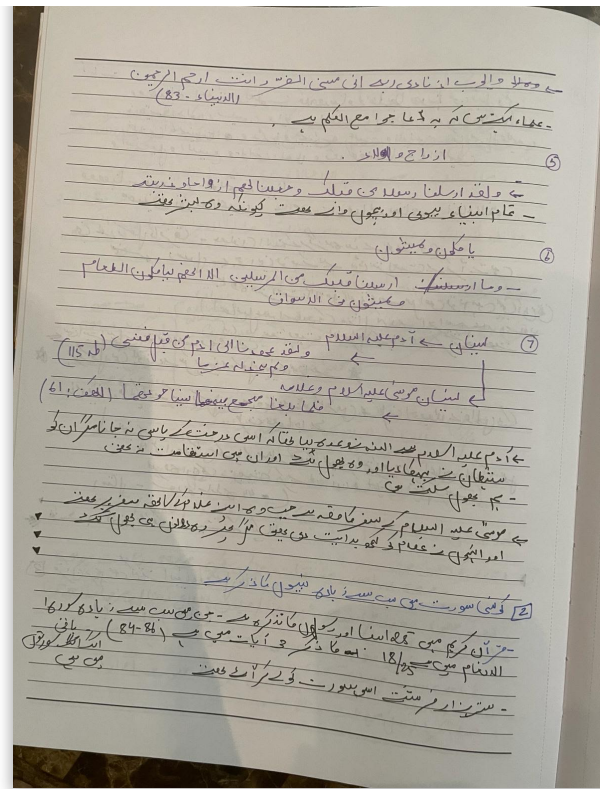 ← وایوب اذ نادی ربہ انی مسنی الضر و انت ارحم الرحمین
(الانبیاء - 83)
- علماء کہتے ہیں کہ یہ دعا جوامع الکلم ہے۔
⑤ ازواج و اولاد۔
← ولقد ارسلنا رسلا من قبلک وجعلنا لھم ازواجا و ذریتہ
- تمام انبیاء بیوی اور بچوں والے تھے کیونکہ وہ بشر تھے
⑥ یاکلون و یمشون
- وما ارسلنا قبلک من المرسلین الا انھم لیاکلون الطعام
و یمشون فی الاسواق
⑦ نسیان ← آدم علیہ السلام ← ولقد عھدنا الی ادم من قبل فنسی (طہ 115)
ولم نجد لہ عزما
← نسیان موسیٰ علیہ السلام و غلامہ
← فلما بلغا مجمع بینھما نسیا حوتھما (الکھف: 61)
← آدم علیہ السلام سے اللہ نے وعدہ لیا تھا کہ اس درخت کے پاس نہ جانا مگر ان کو
شیطان نے بہکا دیا اور وہ بھول گئے اور ان میں استقامت نہ تھی
- ہم بھول سکتے ہیں
← موسیٰ علیہ السلام کے سفر کا قصہ ہے جب وہ اپنے غلام کے ساتھ سفر پر تھے
اور انہوں نے غلام کو کچھ ہدایت دی تھی مگر وہ دونوں ہی بھول گئے
2 کونسی سورت میں سب سے زیادہ نبیوں کا ذکر ہے
- قرآن کریم میں 25 انبیا اور رسول کا تذکرہ ہے - جن میں سب سے زیادہ سورۃ
الانعام میں ہے 18/25 کا ذکر 3 آیت میں ہے (84-86) باقی
الگ الگ سورتوں
میں ہیں
- ستر ہزار فرشتے اس سورت کو لے کر آئے تھے